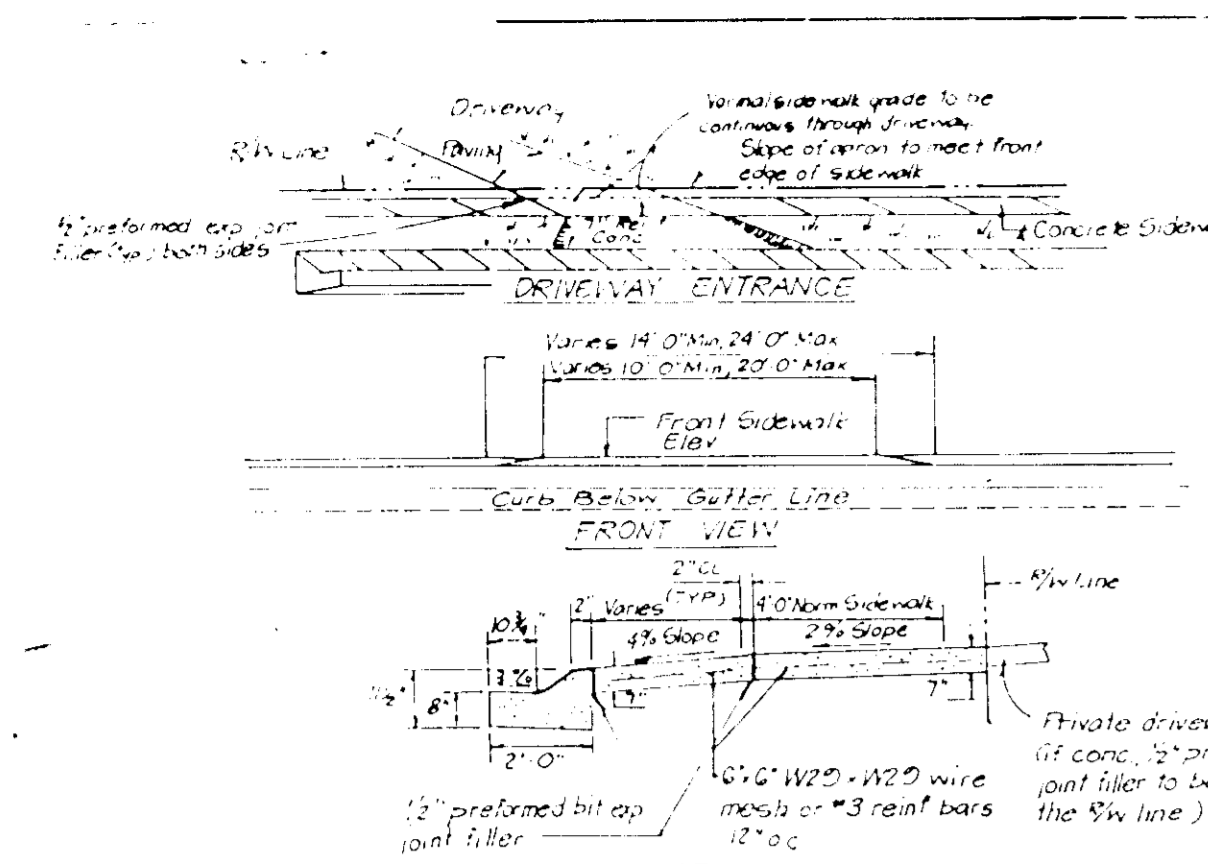 Driveway
Paving
R/W Line
Normal sidewalk grade to be
continuous through driveway.
Slope of apron to meet front
edge of sidewalk
1/2" preformed exp joint
filler (typ.) both sides
7" Rei
Conc
Concrete Sidew
DRIVEWAY ENTRANCE
Varies 14'0" Min, 24'0" Max
Varies 10'0" Min, 20'0" Max
Front Sidewalk
Elev
Curb Below Gutter Line
FRONT VIEW
2" CL
(TYP)
R/W Line
2"
Varies
4'0" Norm Sidewalk
10 3/4"
4% Slope
2% Slope
8"
7"
7"
2'-0"
Private drivew
(if conc., 1/2" pr
joint filler to be
the R/W line)
1/2" preformed bit exp
joint filler
6"x6" W29 x W29 wire
mesh or #3 reinf bars
12" o.c